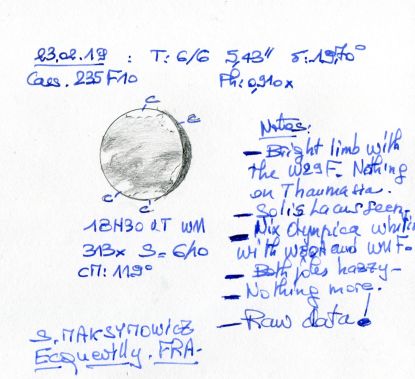 23.02.19 : T: 6/6 5,43" δ: 19,70°
Cass. 235 F10 Ph: 0,910 x
C
C
C
C
18H30 UT WM
313x S= 6/10
CM: 119°
S. MAKSYMOWICZ
Ecquevilly. FRA-
Notes:
- Bright limb with
the W29 F. Nothing
on Thaumasia.
- Solis Lacus seen.
- Nix Olympica
with and
- Both poles hazzy-
- Nothing more.
- Raw data!